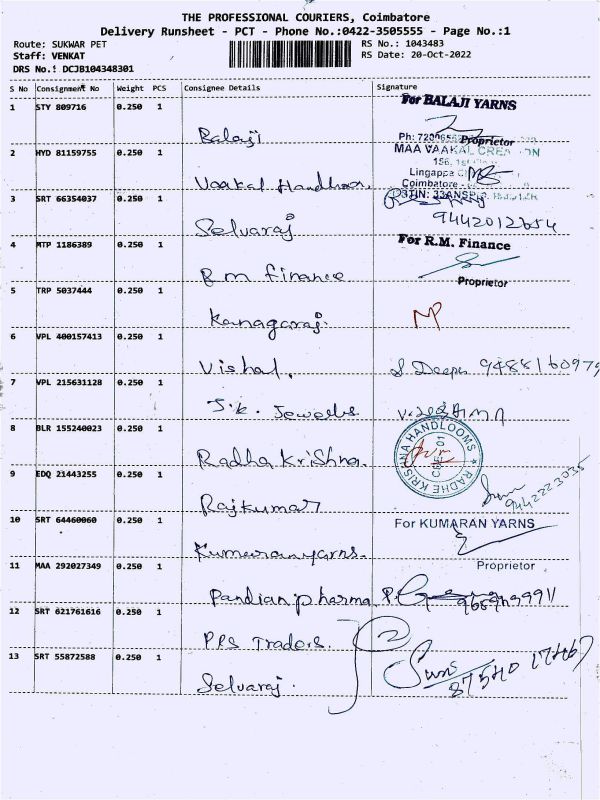 THE PROFESSIONAL COURIERS, Coimbatore
Delivery Runsheet - PCT - Phone No.:0422-3505555 - Page No.:1
Route: SUKWAR PET
RS No.: 1043483
Staff: VENKAT
RS Date: 20-Oct-2022
DRS No.: DCJB104348301
S No Consignment No Weight PCS Consignee Details Signature
1 STY 809716 0.250 1
For BALAJI YARNS
Balaji
Proprietor
2 HYD 81159755 0.250 1
MAA VAAKAL
156,
Vaakal
Lingappa
Coimbatore
3 SRT 66354037 0.250 1
Selvaraj
9442012654
4 MTP 1186389 0.250 1
For R.M. Finance
R m finance
Proprietor
5 TRP 5037444 0.250 1
Kanagaraj.
6 VPL 400157413 0.250 1
Vishal.
7 VPL 215631128 0.250 1
J.K. Jewells
8 BLR 155240023 0.250 1
RADHE KRISHNA HANDLOOMS
Radha Krishna.
9 EDQ 21443255 0.250 1
Rajkumar
9442223035
10 SRT 64460060 0.250 1
For KUMARAN YARNS
Kumaranyarns.
11 MAA 292027349 0.250 1
Proprietor
Pandian pharma
12 SRT 621761616 0.250 1
PPS Traders.
13 SRT 55872588 0.250 1
Selvaraj.